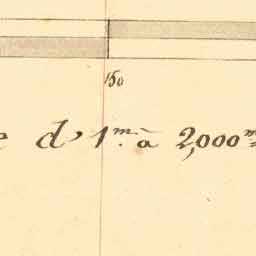 150
e d' 1.m à 2,000m